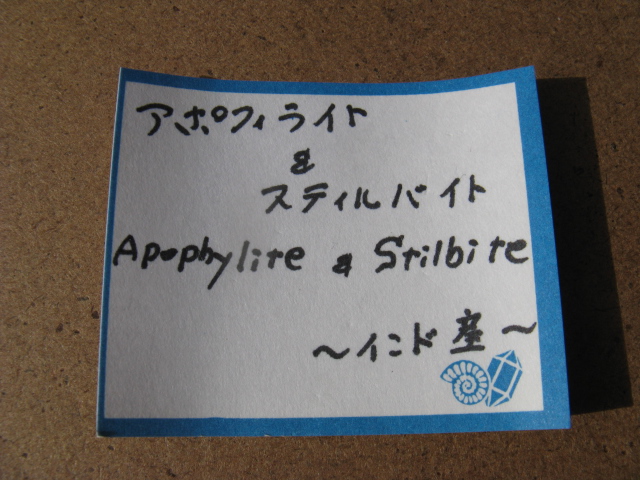 アポフィライト
&
スティルバイト
Apophylite & Stilbite
～インド産～